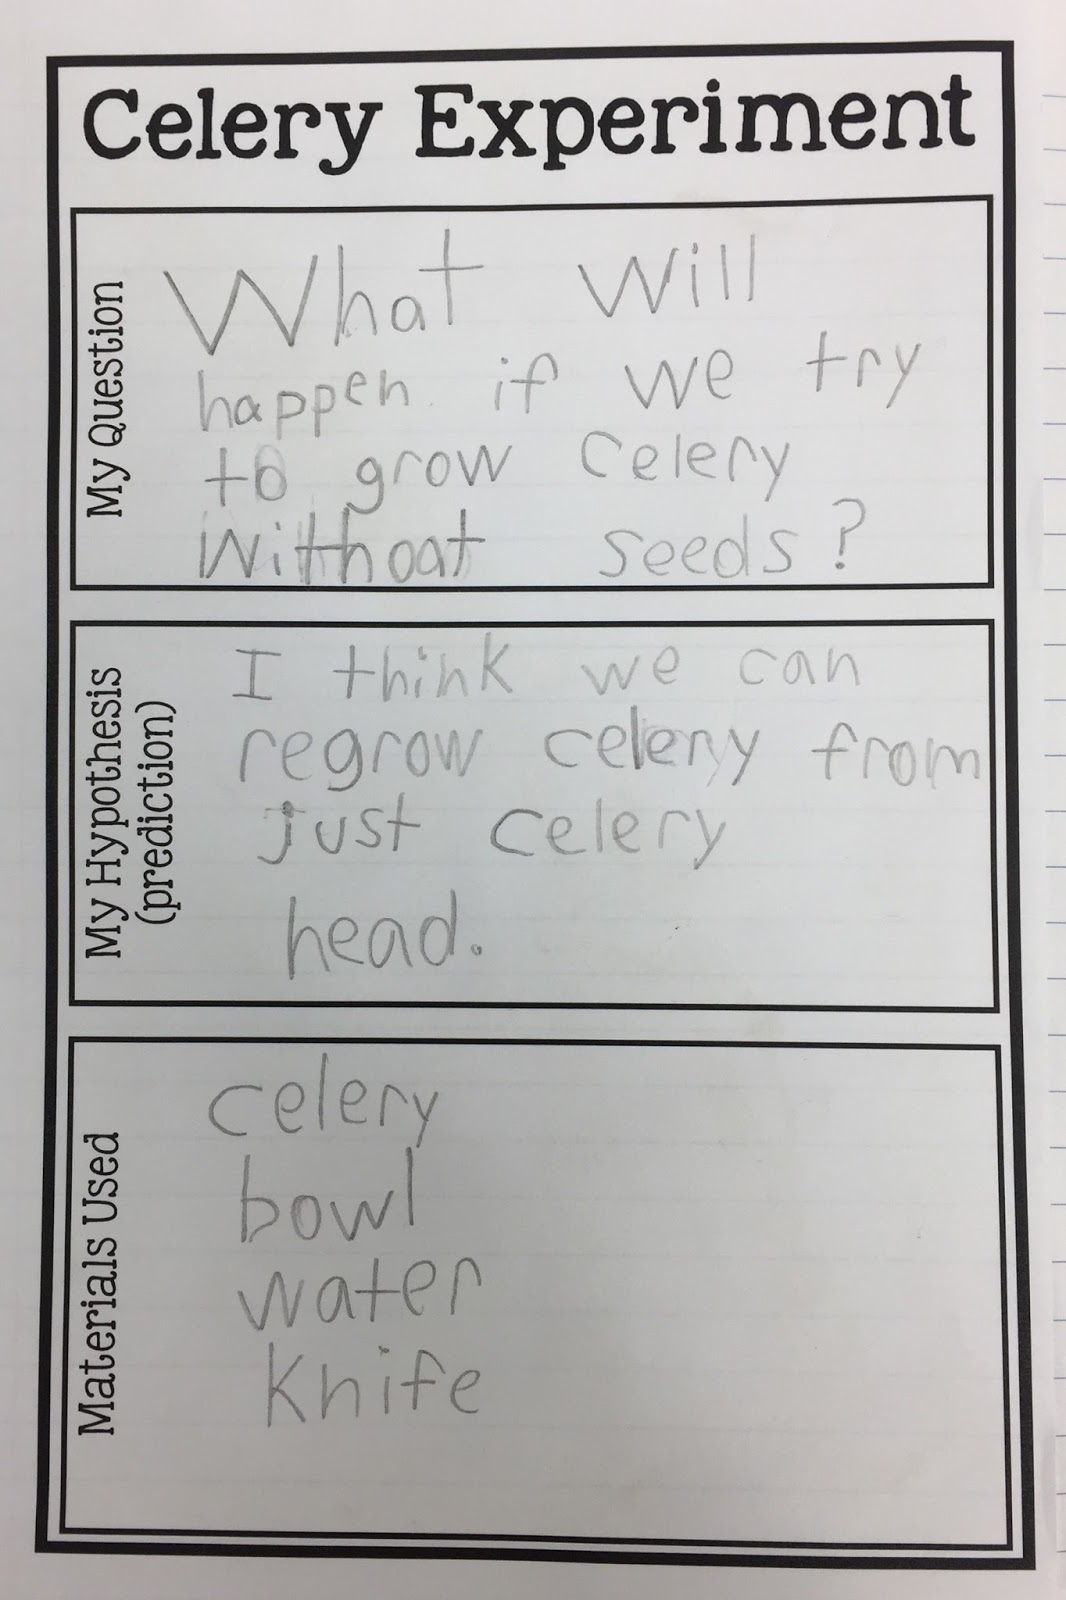 Celery Experiment
My Question
What will
happen if we try
to grow celery
without seeds?
My Hypothesis
(prediction)
I think we can
regrow celery from
just celery
head.
Materials Used
celery
bowl
water
Knife